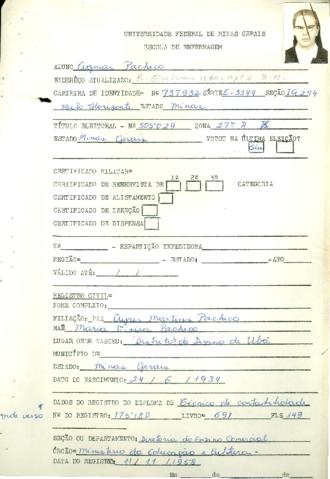 UNIVERSIDADE FEDERAL DE MINAS GERAIS
ESCOLA DE ENFERMAGEM
ALUNO Pacheco
ENDEREÇO ATUALIZADO:
CARTEIRA DE IDENTIDADE= Nº 737932 SÉRIE E-3344 SEÇÃO IG 244
Belo Horizonte ESTADO Minas
TÍTULO ELEITORAL - Nº 505029 ZONA 27ª A
ESTADO Minas Gerais VOTOU NA ÚLTIMA ELEIÇÃO?
Sim
CERTIFICADO MILITAR=
1ª 2ª 3ª
CERTIFICADO DE RESERVISTA DE CATEGORIA
CERTIFICADO DE ALISTAMENTO
CERTIFICADO DE ISENÇÃO
CERTIFICADO DE DISPENSA
Nº - REPARTIÇÃO EXPEDIDORA
REGIÃO= - ESTADO: -ANO
VÁLIDO ATÉ: / /
REGISTRO CIVIL=
NOME COMPLETO:
FILIAÇÃO: PAI Martins Pacheco
MÃE Maria Vieira Pacheco
LUGAR ONDE NASCEU: Distrito de Divino de Ubá
MUNICÍPIO DE
ESTADO: Minas Gerais
DATA DO NASCIMENTO: 24 / 6 / 1934
DADOS DO REGISTRO DO DIPLOMA DE Técnico de contabilidade
verso Nº DO REGISTRO: 175180 LIVRO= 691 FLS 149
SEÇÃO OU DEPARTAMENTO: Diretoria do Ensino Comercial
ÓRGÃO= Ministério da Educação e Cultura
DATA DO REGISTRO: 11 / 11 / 1958
Em de de